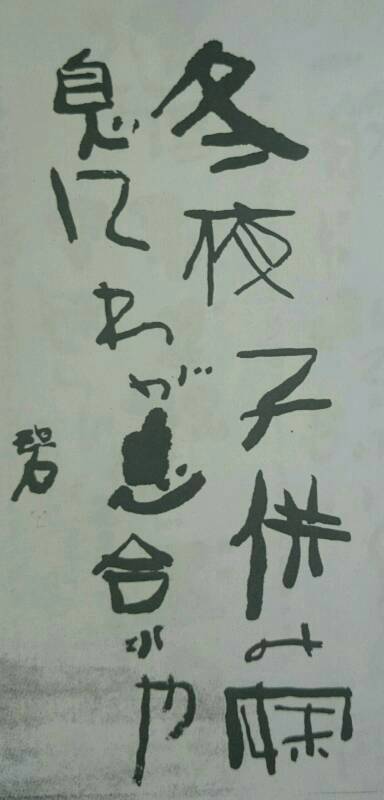 冬夜子供の寐
息にわが息合や
碧